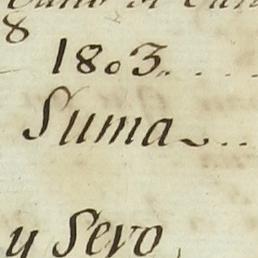 8
1803. . . .
Suma ~ . .
y Sevo